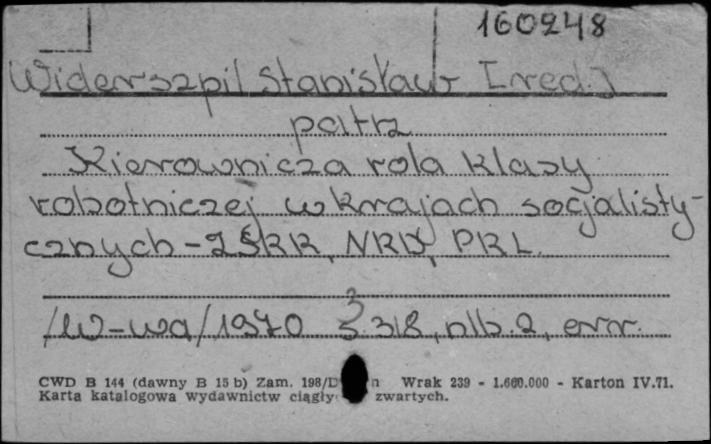 160248
Widerszpil Stanisław [red.]
patrz
Kierownicza rola klasy
robotniczej w krajach socjalisty-
cznych - ZSRR, NRD, PRL.
/W-wa/ 1970 s. 318, nlb. 2, err.
CWD B 144 (dawny B 15 b) Zam. 198/D Wrak 239 - 1.600.000 - Karton IV.71.
Karta katalogowa wydawnictw ciągły zwartych.